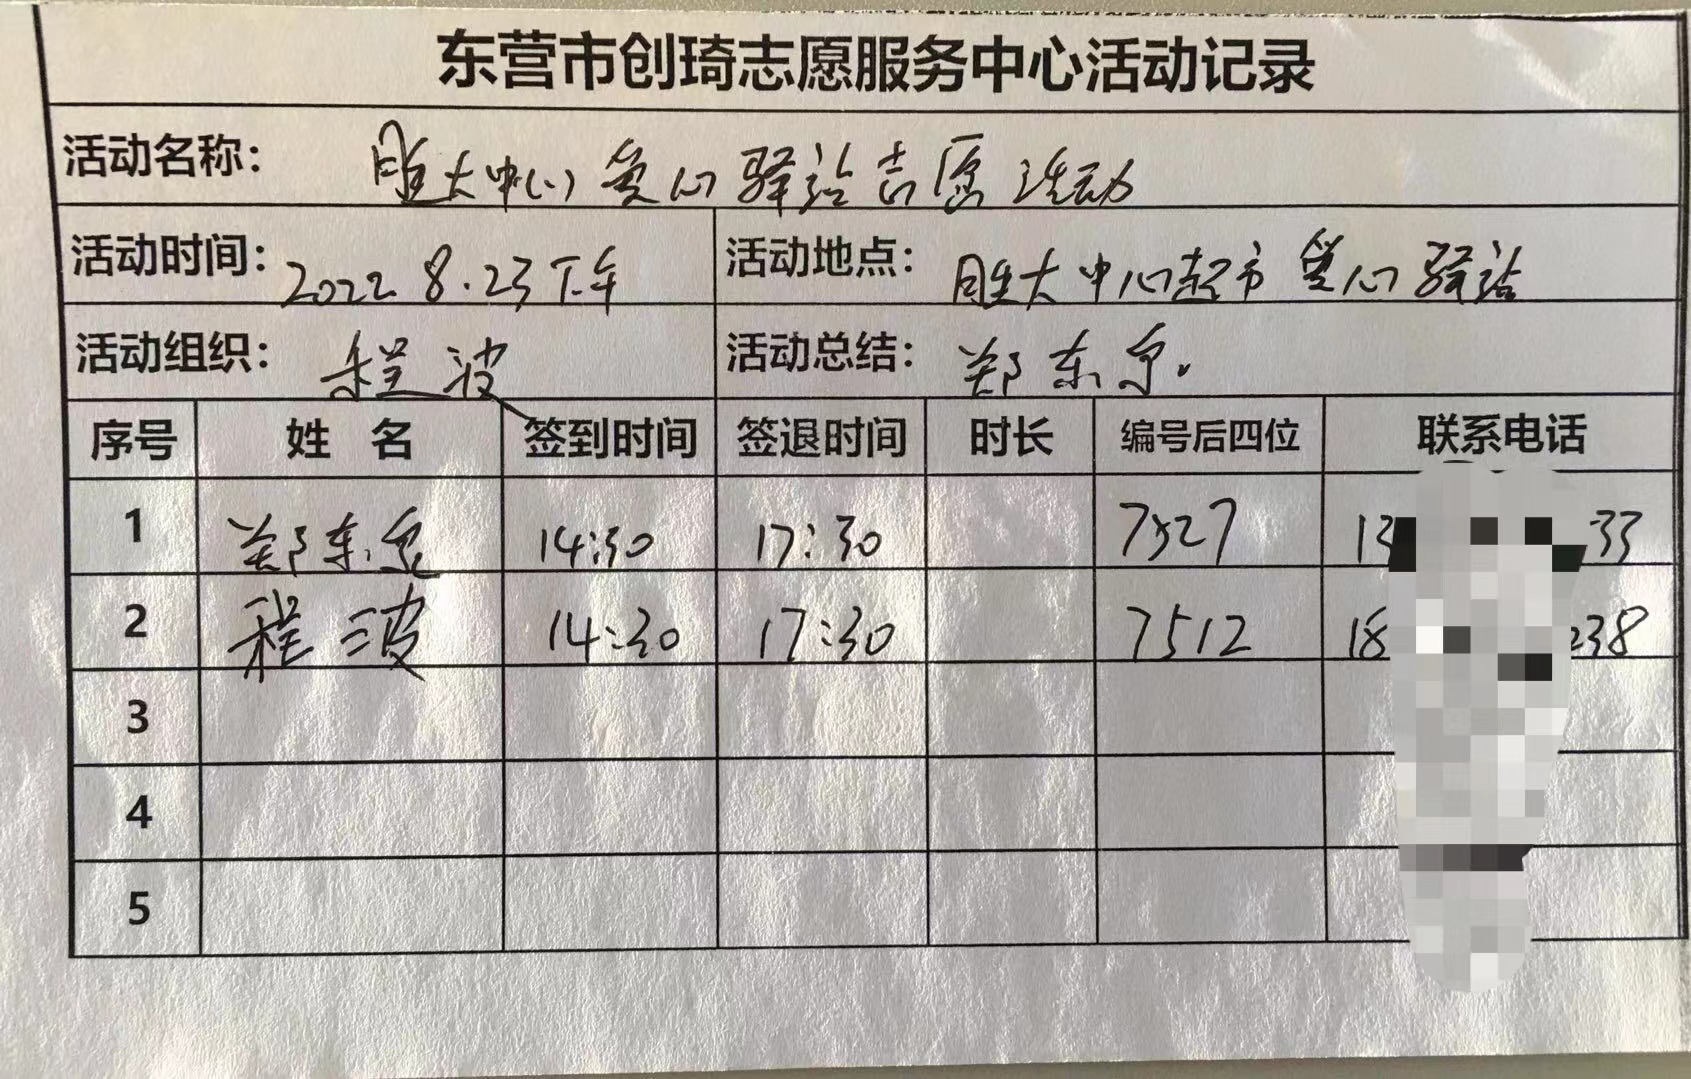 东营市创琦志愿服务中心活动记录
活动名称： 胜大中心爱心驿站志愿活动
活动时间： 2022.8.23下午 活动地点： 胜大中心超市爱心驿站
活动组织： 程波 活动总结： 郑东泉.
序号 姓名 签到时间 签退时间 时长 编号后四位 联系电话
1 郑东泉 14:30 17:30 7527 13 33
2 程波 14:30 17:30 7512 18 238
3
4
5